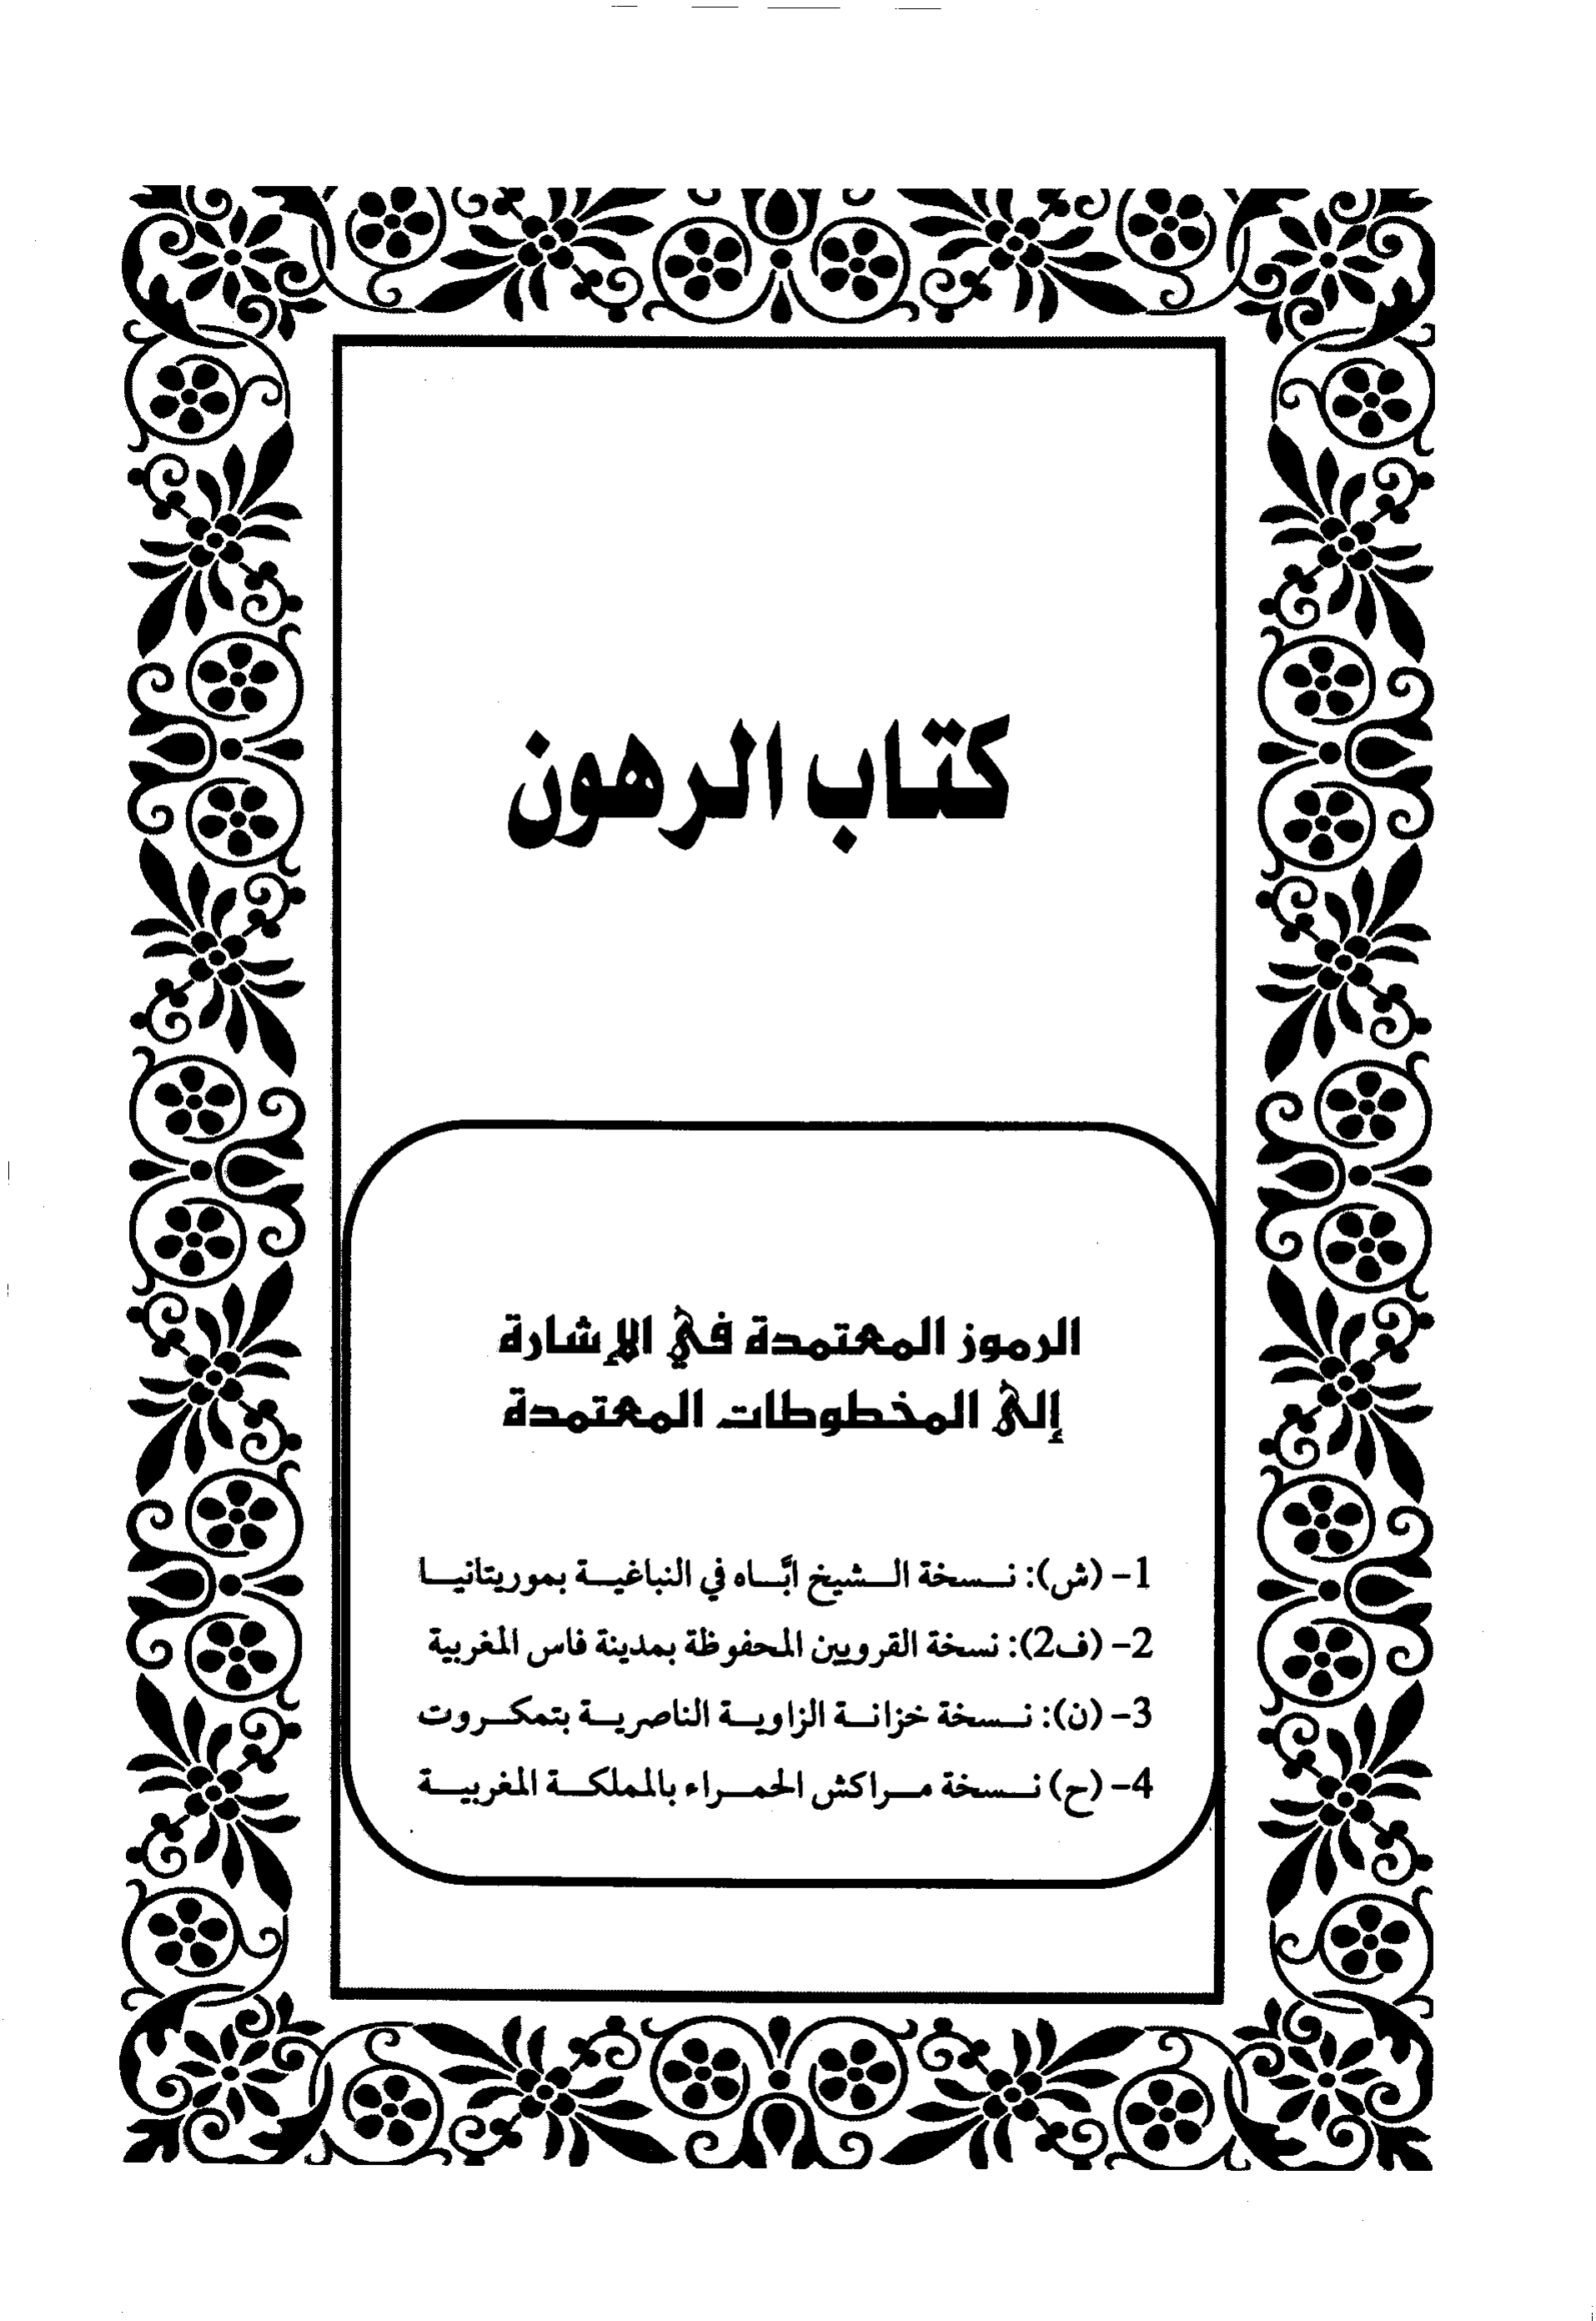 كتاب الرهون
الرموز المعتمدة في الإشارة
إلى المخطوطات المعتمدة
1- (ش): نسخة الشيخ ابَّاه في النباغية بموريتانيا
2- (ف2): نسخة القرويين المحفوظة بمدينة فاس المغربية
3- (ن): نسخة خزانة الزاوية الناصرية بتمكروت
4- (ح) نسخة مراكش الحمراء بالمملكة المغربية